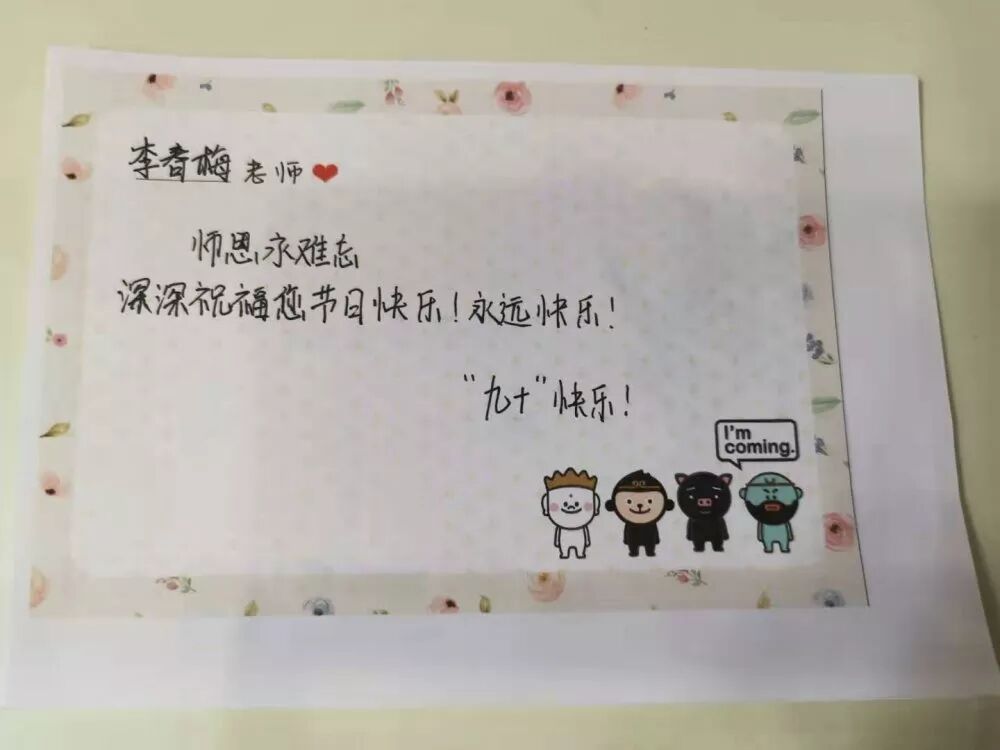 李香梅 老师
师恩永难忘
深深祝福您节日快乐!永远快乐!
"九十"快乐!
I'm
coming.